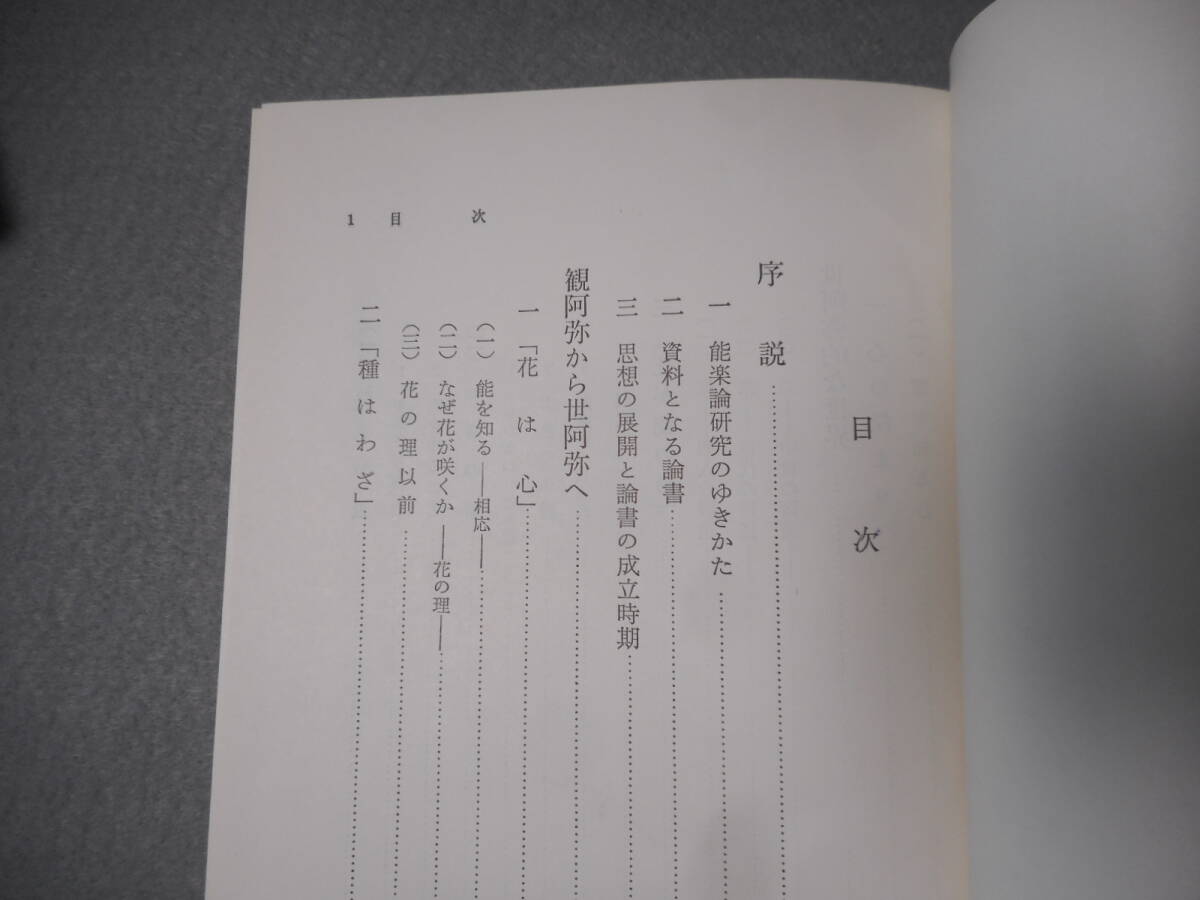 目次
序説
一 能楽論研究のゆきかた
二 資料となる論書
三 思想の展開と論書の成立時期
観阿弥から世阿弥へ
一 「花は心」
(一) 能を知る——相応——
(二) なぜ花が咲くか——花の理——
(三) 花の理以前
二 「種はわざ」
1 目次